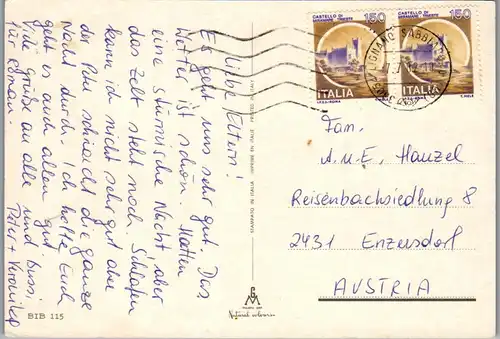 Liebe Eltern!
Es geht uns sehr gut. Das
Wetter ist schön. Hatten
eine stürmische Nacht aber
das Zelt steht noch. Schlafen
kann ich nicht sehr gut aber
der Peter schläft die ganze
Nacht durch. Ich hoffe Euch
geht es auch allen gut.
Viele Grüße an alle und Bussi
für Roman. Peter + Veronika
BIB 115
STAMPATO IN ITALIA
Natural colour
CASTELLO DI
MIRAMARE - TRIESTE
150
ITALIA
CASTELLO DI
MIRAMARE - TRIESTE
150
ITALIA
LIGNANO SABBIADORO
Fam.
A.u.E. Hanzel
Reisenbachsiedlung 8
2431 Enzersdorf
AUSTRIA